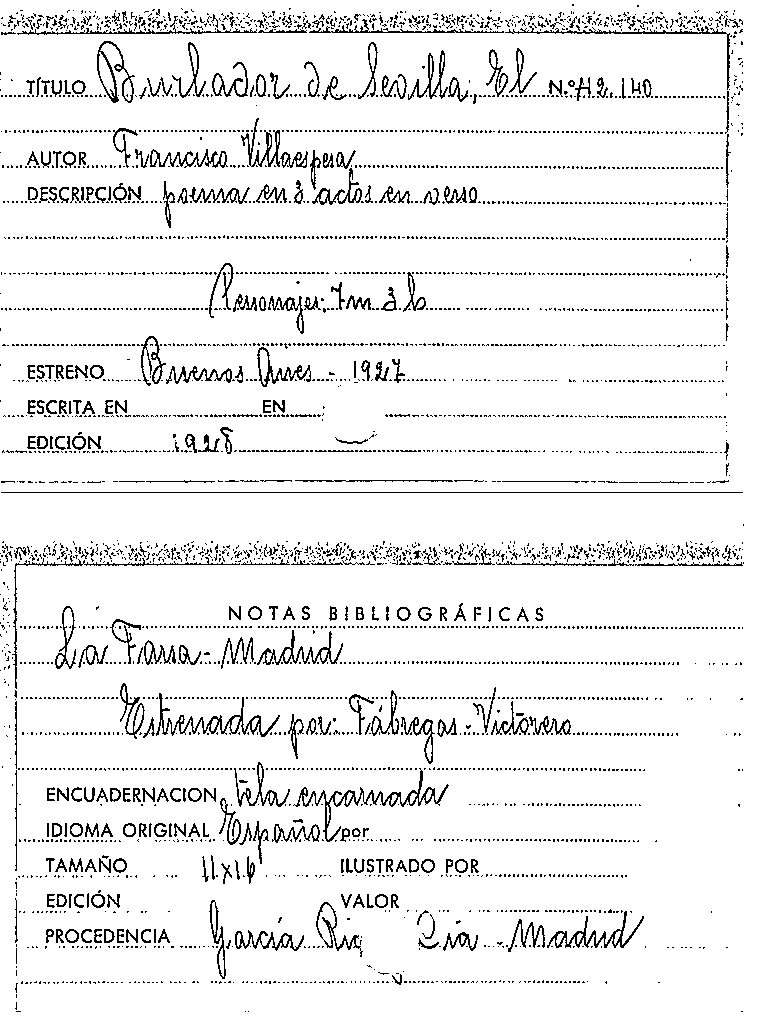 TÍTULO Burlador de Sevilla, El N.º 42.140
AUTOR Francisco Villaespesa
DESCRIPCIÓN poema en 3 actos en verso
Personajes: 7m 3h
ESTRENO Buenos Aires - 1927
ESCRITA EN EN
EDICIÓN 1928
NOTAS BIBLIOGRÁFICAS
La Farsa - Madrid
Estrenada por: Fábregas - Victorero
ENCUADERNACION tela encarnada
IDIOMA ORIGINAL Español por
TAMAÑO 11x16 ILUSTRADO POR
EDICIÓN VALOR
PROCEDENCIA García Madrid